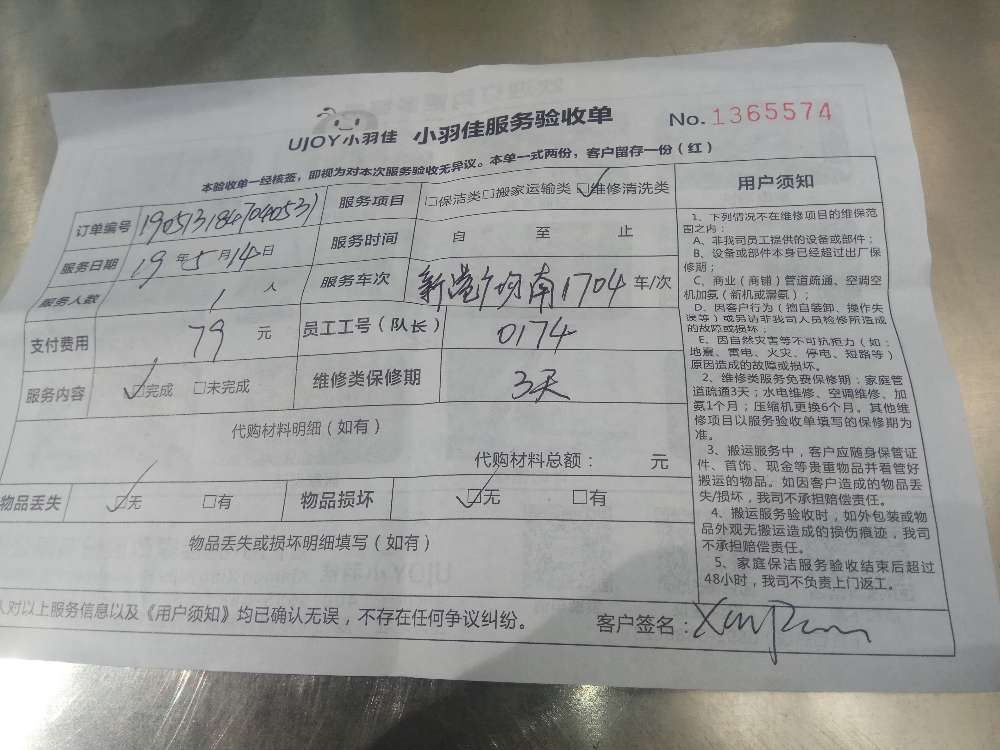 UJOY小羽佳 小羽佳服务验收单 No.1365574
本验收单一经核签，即视为对本次服务验收无异议。本单一式两份，客户留存一份（红）
订单编号 1905131847040531 服务项目 □保洁类□搬家运输类☑维修清洗类
服务日期 19年5月14日 服务时间 自 至 止
服务人数 1 人 服务车次 南1704 车/次
支付费用 79 元 员工工号（队长） 0174
服务内容 ☑完成 □未完成 维修类保修期 3天
代购材料明细（如有）
代购材料总额： 元
物品丢失 ☑无 □有 物品损坏 ☑无 □有
物品丢失或损坏明细填写（如有）
人对以上服务信息以及《用户须知》均已确认无误，不存在任何争议纠纷。 客户签名：
用户须知
1、下列情况不在维修项目的维保范
围之内：
A、非我司员工提供的设备或部件；
B、设备或部件本身已经超过出厂保
修期；
C、商业（商铺）管道疏通、空调空
机加氨（新机或漏氨）；
D、因客户行为（擅自装卸、操作失
误等）或另请非我司人员检修所造成
的故障或损坏；
E、因自然灾害等不可抗拒力（如：
地震、雷电、火灾、停电、短路等）
原因造成的故障或损坏。
2、维修类服务免费保修期：家庭管
道疏通3天；水电维修、空调维修、加
氨1个月；压缩机更换6个月。其他维
修项目以服务验收单填写的保修期为
准。
3、搬运服务中，客户应随身保管证
件、首饰、现金等贵重物品并看管好
搬运的物品。如因客户造成的物品丢
失/损坏，我司不承担赔偿责任。
4、搬运服务验收时，如外包装或物
品外观无搬运造成的损伤痕迹，我司
不承担赔偿责任。
5、家庭保洁服务验收结束后超过
48小时，我司不负责上门返工。